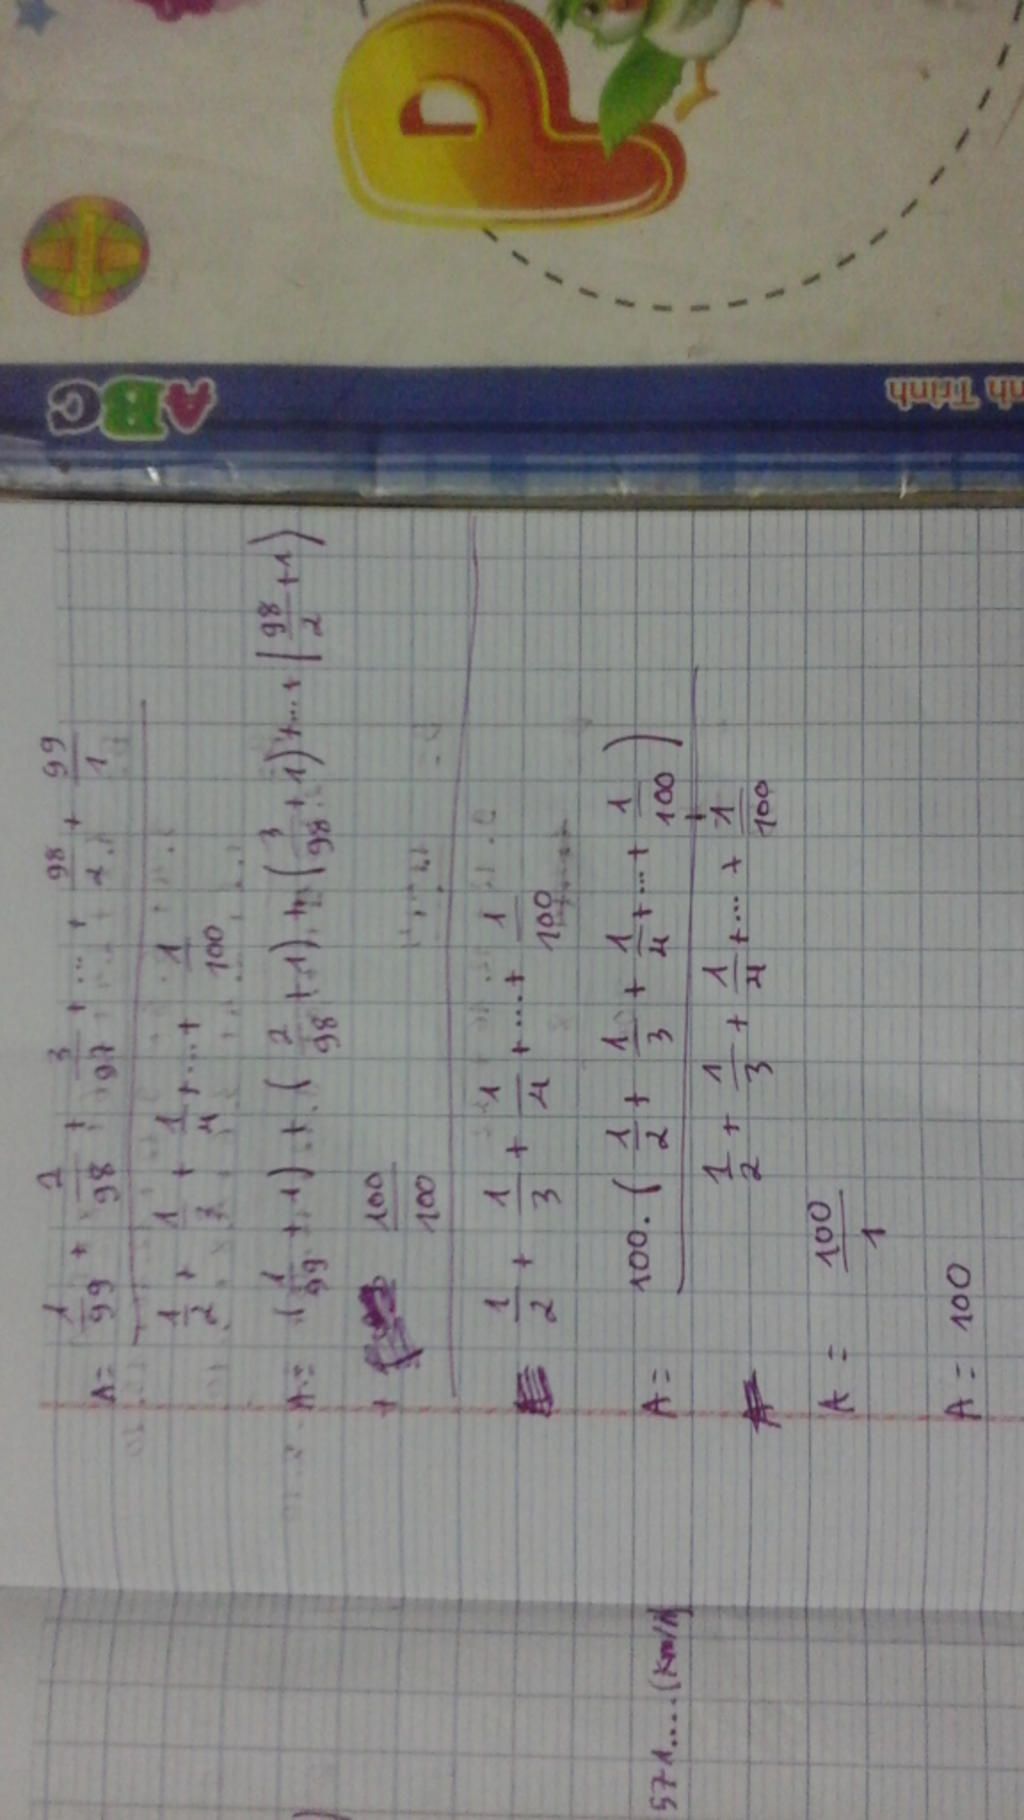 A = 1/99 + 2/98 + 3/97 + ... + 98/2 + 99/1
1/2 + 1/3 + 1/4 + ... + 1/100
A = (1/99 + 1) + (2/98 + 1) + (3/98 + 1) + ... + (98/2 + 1)
+ 100/100
1/2 + 1/3 + 1/4 + .... + 1/100
A = 100. (1/2 + 1/3 + 1/4 + ... + 1/100)
1/2 + 1/3 + 1/4 + ... + 1/100
A = 100/1
A = 100
571.... (km/h)
ABC
P
nh Trình